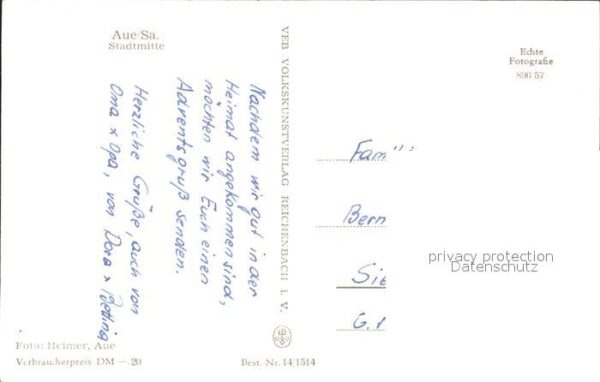 Aue/Sa.
Stadtmitte
Nachdem wir gut in der
Heimat angekommen sind,
möchten wir Euch einen
Adventsgruß senden.
Herzliche Grüße, auch von
Oma + Opa, von Dora +
VEB VOLKSKUNSTVERLAG REICHENBACH i. V.
Echte
Fotografie
896 57
Fam
Bern
Sie
G.
privacy protection
Datenschutz
Foto: Heimer, Aue
Verbraucherpreis DM -.20
Best.-Nr. 14/1514